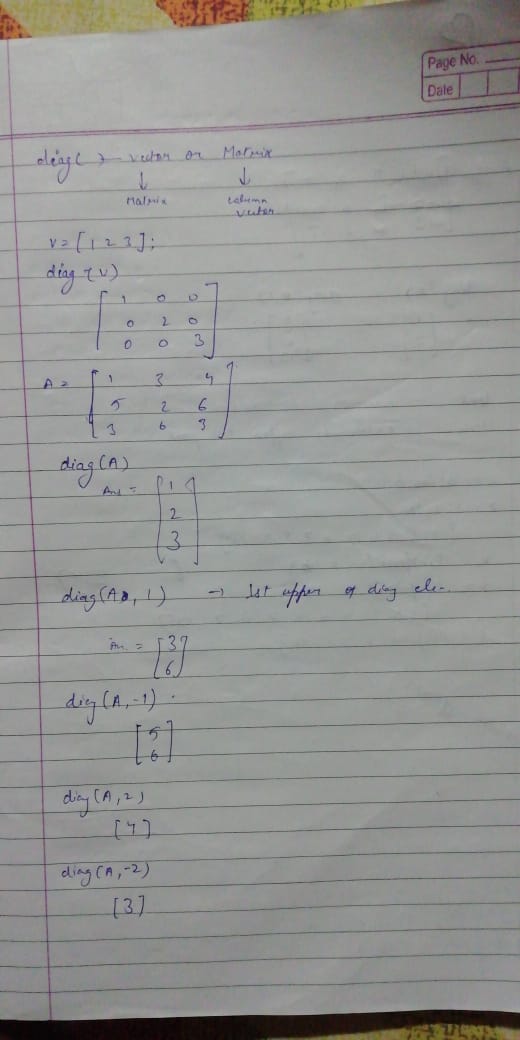 Page No.
Date
diag( ) - vector or Matrix
↓ ↓
Matrix column vector
v = [ 1 2 3 ];
diag (v)
[ 1 0 0
0 2 0
0 0 3 ]
A = [ 1 3 4
5 2 6
3 6 3 ]
diag (A)
Ans = [ 1
2
3 ]
diag (A, 1) → 1st upper of diag ele.
An. = [ 3
6 ]
diag (A, -1).
[ 5
6 ]
diag (A, 2)
[4]
diag (A, -2)
[3]